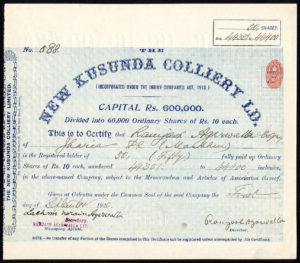 50, SHARES.
44351 to 44400
No. 088
THE
NEW KUSUNDA COLLIERY LD.
(INCORPORATED UNDER THE INDIAN COMPANIES ACT, 1913.)
CAPITAL Rs. 600,000.
Divided into 60,000 Ordinary Shares of Rs. 10 each.
This is to Certify that Ramjash Agarwalla Esq
of Jharia
is the Registered holder of 50 (Fifty) fully paid up Ordinary
Shares of Rs. 10 each, numbered 44351 to 44400 inclusive,
subject to the Memorandum and Articles of Association thereof.
Given at Calcutta under the Common Seal of the said Company the First
day of September 19
Lachmi Narain Agarwalla
Managing Agents.
Agarwalla
Director.
NOTE.—No Transfer of any Portion of the Shares comprised in this Certificate can be registered unless accompanied by this Certificate.
NEW KUSUNDA COLLIERY LIMITED.